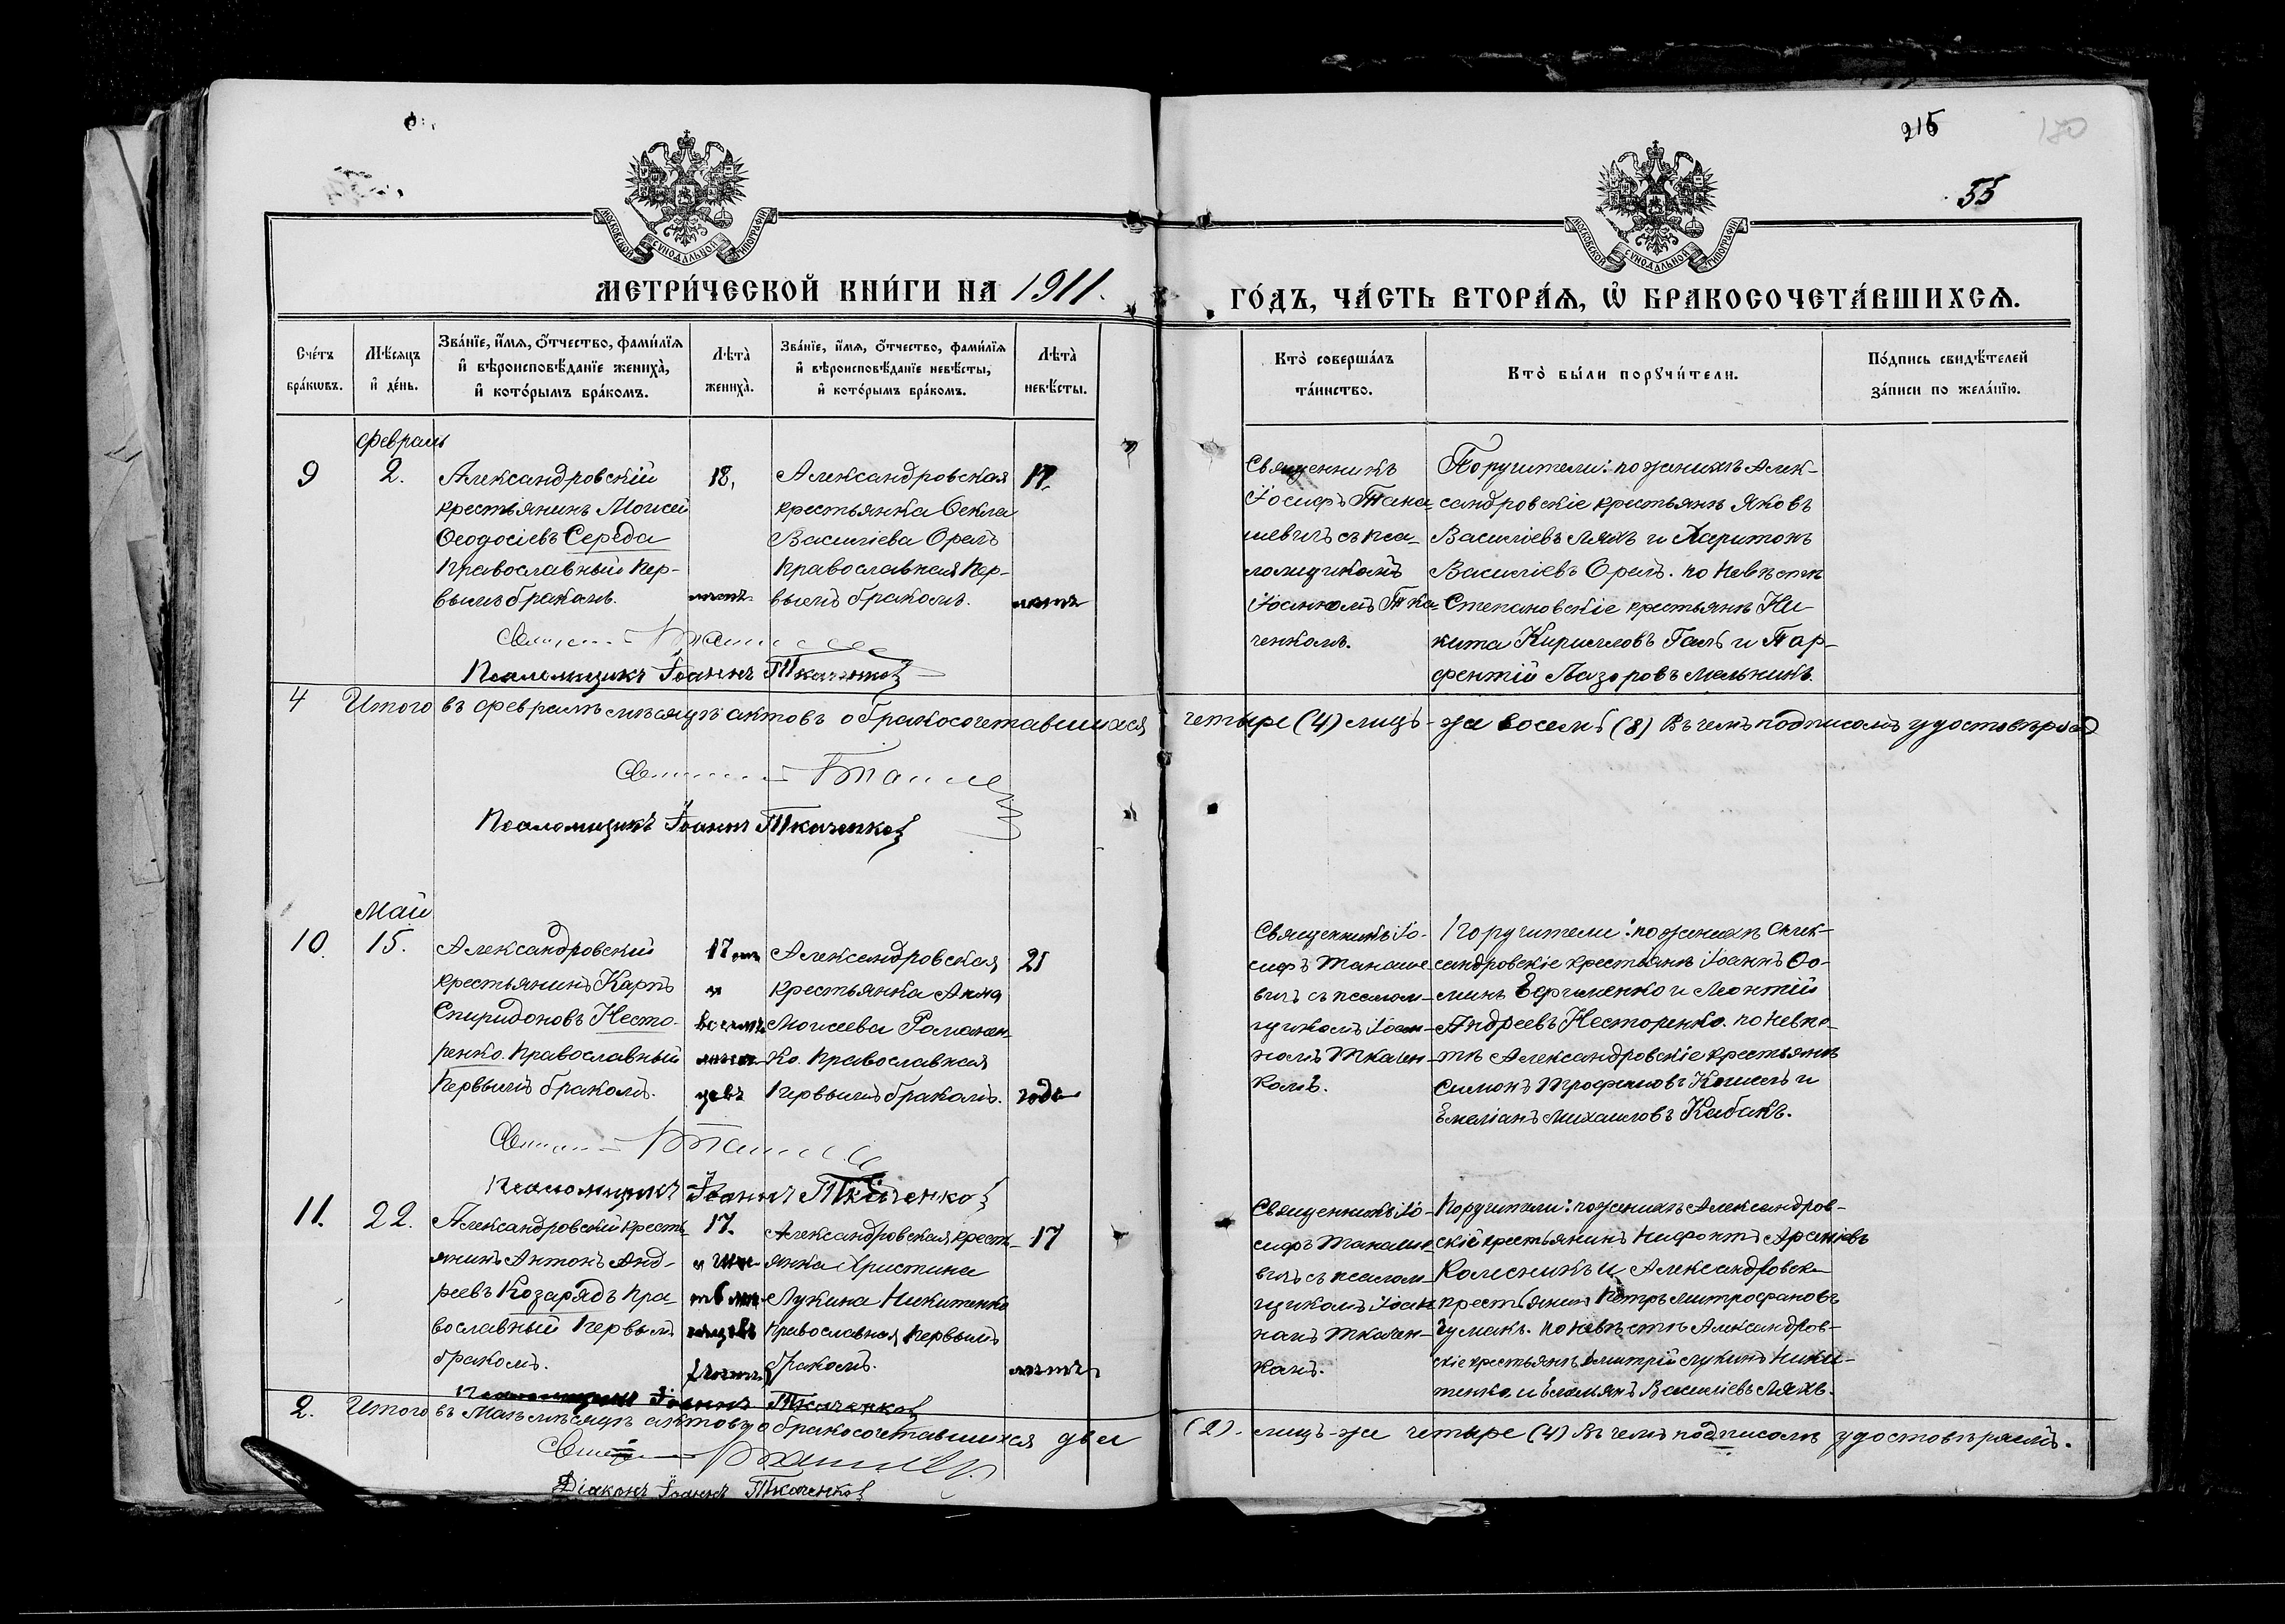 215
180
55
МОСКОВСКОЙ СѴНОДАЛЬНОЙ ТИПОГРАФІИ
МОСКОВСКОЙ СѴНОДАЛЬНОЙ ТИПОГРАФІИ
МЕТРИ́ЧЕСКОЙ КНИ́ГИ НА 1911.
ГО́ДЪ, ЧА́СТЬ ВТОРА́Ѧ, Ѡ҆ БРАКОСОЧЕТА́ВШИХСѦ.
Сче́тъ бра́кѡвъ.
Мѣ́сѧцъ и҆ де́нь.
Зва́нїе, и҆́мѧ, ѻ҆́тчество, фами́лїѧ
и҆ вѣроисповѣ́данїе жениха̀,
и҆ кото́рымъ бра́комъ.
Лѣ́та жениха̀.
Зва́нїе, и҆́мѧ, ѻ҆́тчество, фами́лїѧ
и҆ вѣроисповѣ́данїе невѣ́сты,
и҆ кото́рымъ бра́комъ.
Лѣ́та невѣ́сты.
Кто̀ соверша́лъ
та́инство.
Кто̀ бы́ли порꙋчи́тели.
По́дпись свидѣ́телей
за́писи по жела́нїю.
февраль
9
2.
Александровскій
крестьянинъ Моисей
Ѳеодосіевъ Середа
православный пер-
вымъ бракомъ.
18,
лѣтъ
Александровская
крестьянка Ѳекла
Василіева Орелъ
православная пер-
вымъ бракомъ.
17.
лѣтъ
Священникъ
Іосифъ Тана-
шевичъ съ пса-
ломщикомъ
Іоанномъ Тка-
ченкомъ.
Поручители: по женихѣ Алек-
сандровскіе крестьяне Яковъ
Василіевъ Ляхъ и Харитонъ
Василіевъ Орелъ. по невѣстѣ
Степановскіе крестьяне Ни-
кита Кирилловъ Галь и Пар-
фентій Лазоровъ Мельникъ.
Псаломщикъ Іоаннъ Ткаченко
4 Итого въ февралѣ мѣсяцѣ актовъ о бракосочетавшихся четыре (4) лицъ-же восемь (8) Въ чемъ подписомъ удостовѣряемъ
Псаломщикъ Іоаннъ Ткаченко
Май
10.
15.
Александровскій
крестьянинъ Карпъ
Спиридоновъ Несто-
ренко. православный
первымъ бракомъ.
17 лѣтъ
и
восемь
мѣся-
цевъ
Александровская
крестьянка Анна
Моисеева Романен-
ко. православная
первымъ бракомъ.
21
годъ
Священникъ Іо-
сифъ Танаше-
вичъ съ псалом-
щикомъ Іоан-
номъ Ткачен-
комъ.
Поручители: по женихѣ Алек-
сандровскіе крестьяне Іоаннъ Ѳо-
минъ Ефименко и Леонтій
Андреевъ Несторенко. по невѣс-
тѣ Александровскіе крестьяне
Симонъ Трофимовъ Кисель и
Емеліанъ Михаиловъ Кабакъ.
Псаломщикъ Іоаннъ Ткаченко
11.
22.
Александровскій кресть-
янинъ Антонъ Анд-
реевъ Козарядъ пра-
вославный первымъ
бракомъ.
17.
и шес-
ть мѣ-
сяцевъ
лѣтъ
Александровская кресть-
янка Христина
Лукина Никитенко
православная первымъ
бракомъ.
17
лѣтъ
Священникъ Іо-
сифъ Танаше-
вичъ съ псалом-
щикомъ Іоан-
номъ Ткачен-
комъ.
Поручители: по женихѣ Александров-
скіе крестьянинъ Нифонтъ Арсеніевъ
Колесникъ и Александровск-
крестьянинъ Петръ Митрофановъ
Чумакъ. по невѣстѣ Александров-
скіе крестьяне Димитрій Лукинъ Ники-
тенко и Василіевъ Ляхъ.
Псаломщикъ Іоаннъ Ткаченко
2. Итого въ Маѣ мѣсяцѣ актовъ о бракосочетавшихся два (2). лицъ-же четыре (4) Въ чемъ подписомъ удостовѣряемъ.
Діаконъ Іоаннъ Ткаченко